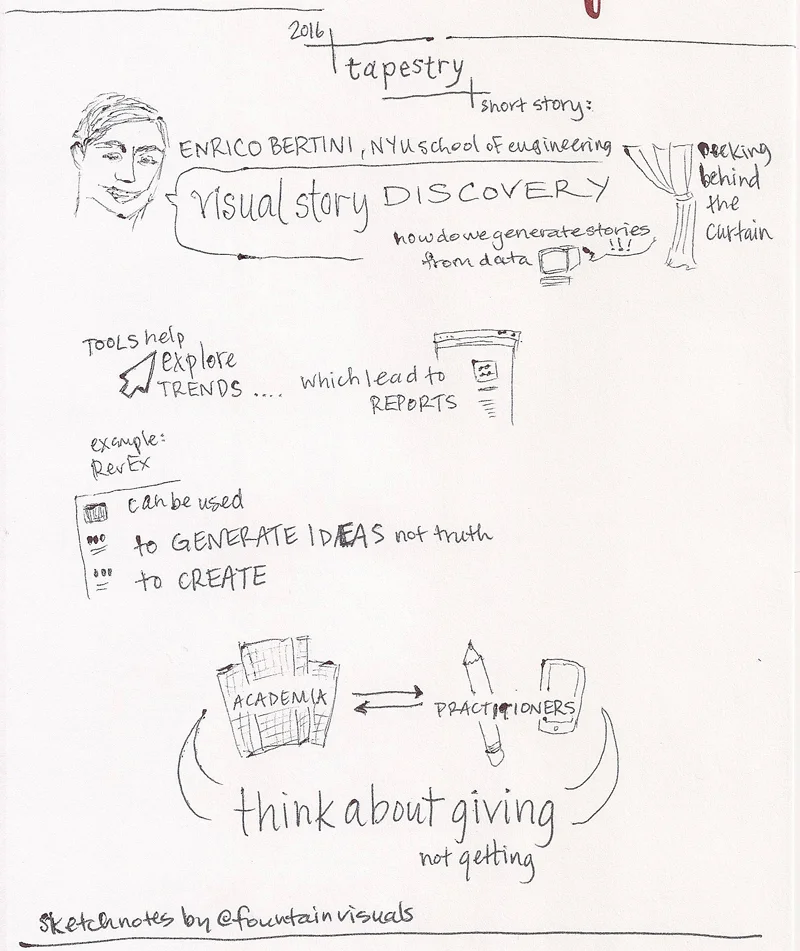 2016
tapestry
short story:
ENRICO BERTINI, NYU school of engineering
visual story DISCOVERY
how do we generate stories
from data
!!!
peeking
behind
the
curtain
TOOLS help
explore
TRENDS ....
which lead to
REPORTS
example:
RevEx
can be used
to GENERATE IDEAS not truth
to CREATE
ACADEMIA
PRACTITIONERS
think about giving
not getting
sketchnotes by @fountainvisuals